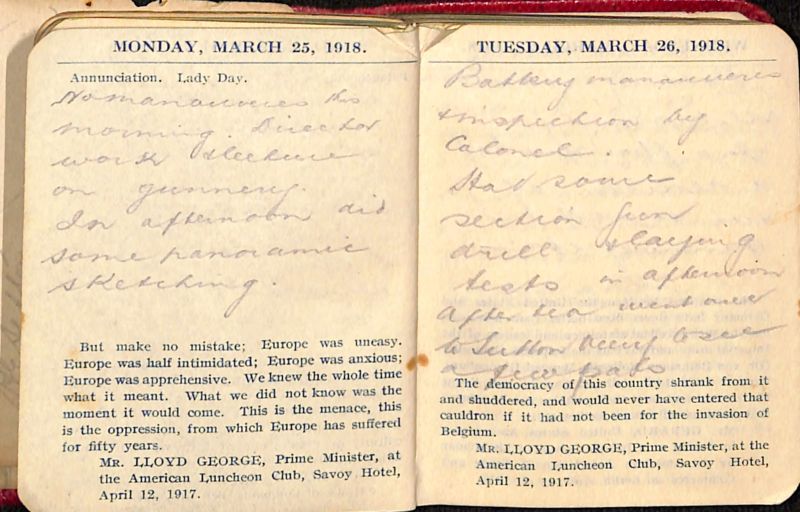 MONDAY, MARCH 25, 1918.
Annunciation. Lady Day.
No manoeuvres this
morning. Director
work & lecture
on gunnery.
In afternoon did
some panoramic
sketching.
But make no mistake; Europe was uneasy.
Europe was half intimidated; Europe was anxious;
Europe was apprehensive. We knew the whole time
what it meant. What we did not know was the
moment it would come. This is the menace, this
is the oppression, from which Europe has suffered
for fifty years.
MR. LLOYD GEORGE, Prime Minister, at
the American Luncheon Club, Savoy Hotel,
April 12, 1917.
TUESDAY, MARCH 26, 1918.
Battery manoeuvres
& inspection by
Colonel.
Had some
section gun
drill & laying
tests in afternoon
After tea went over
to Sutton Veny to see
a few pals
The democracy of this country shrank from it
and shuddered, and would never have entered that
cauldron if it had not been for the invasion of
Belgium.
MR. LLOYD GEORGE, Prime Minister, at the
American Luncheon Club, Savoy Hotel,
April 12, 1917.